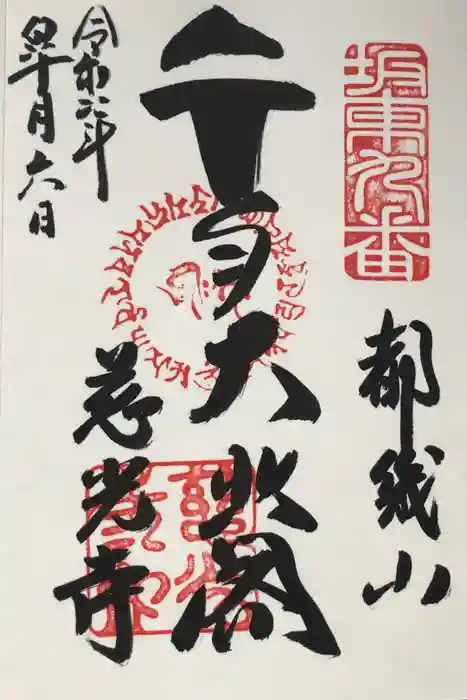 坂東九番
都幾山
千手大悲閣
慈光寺
令和六年
十月六日